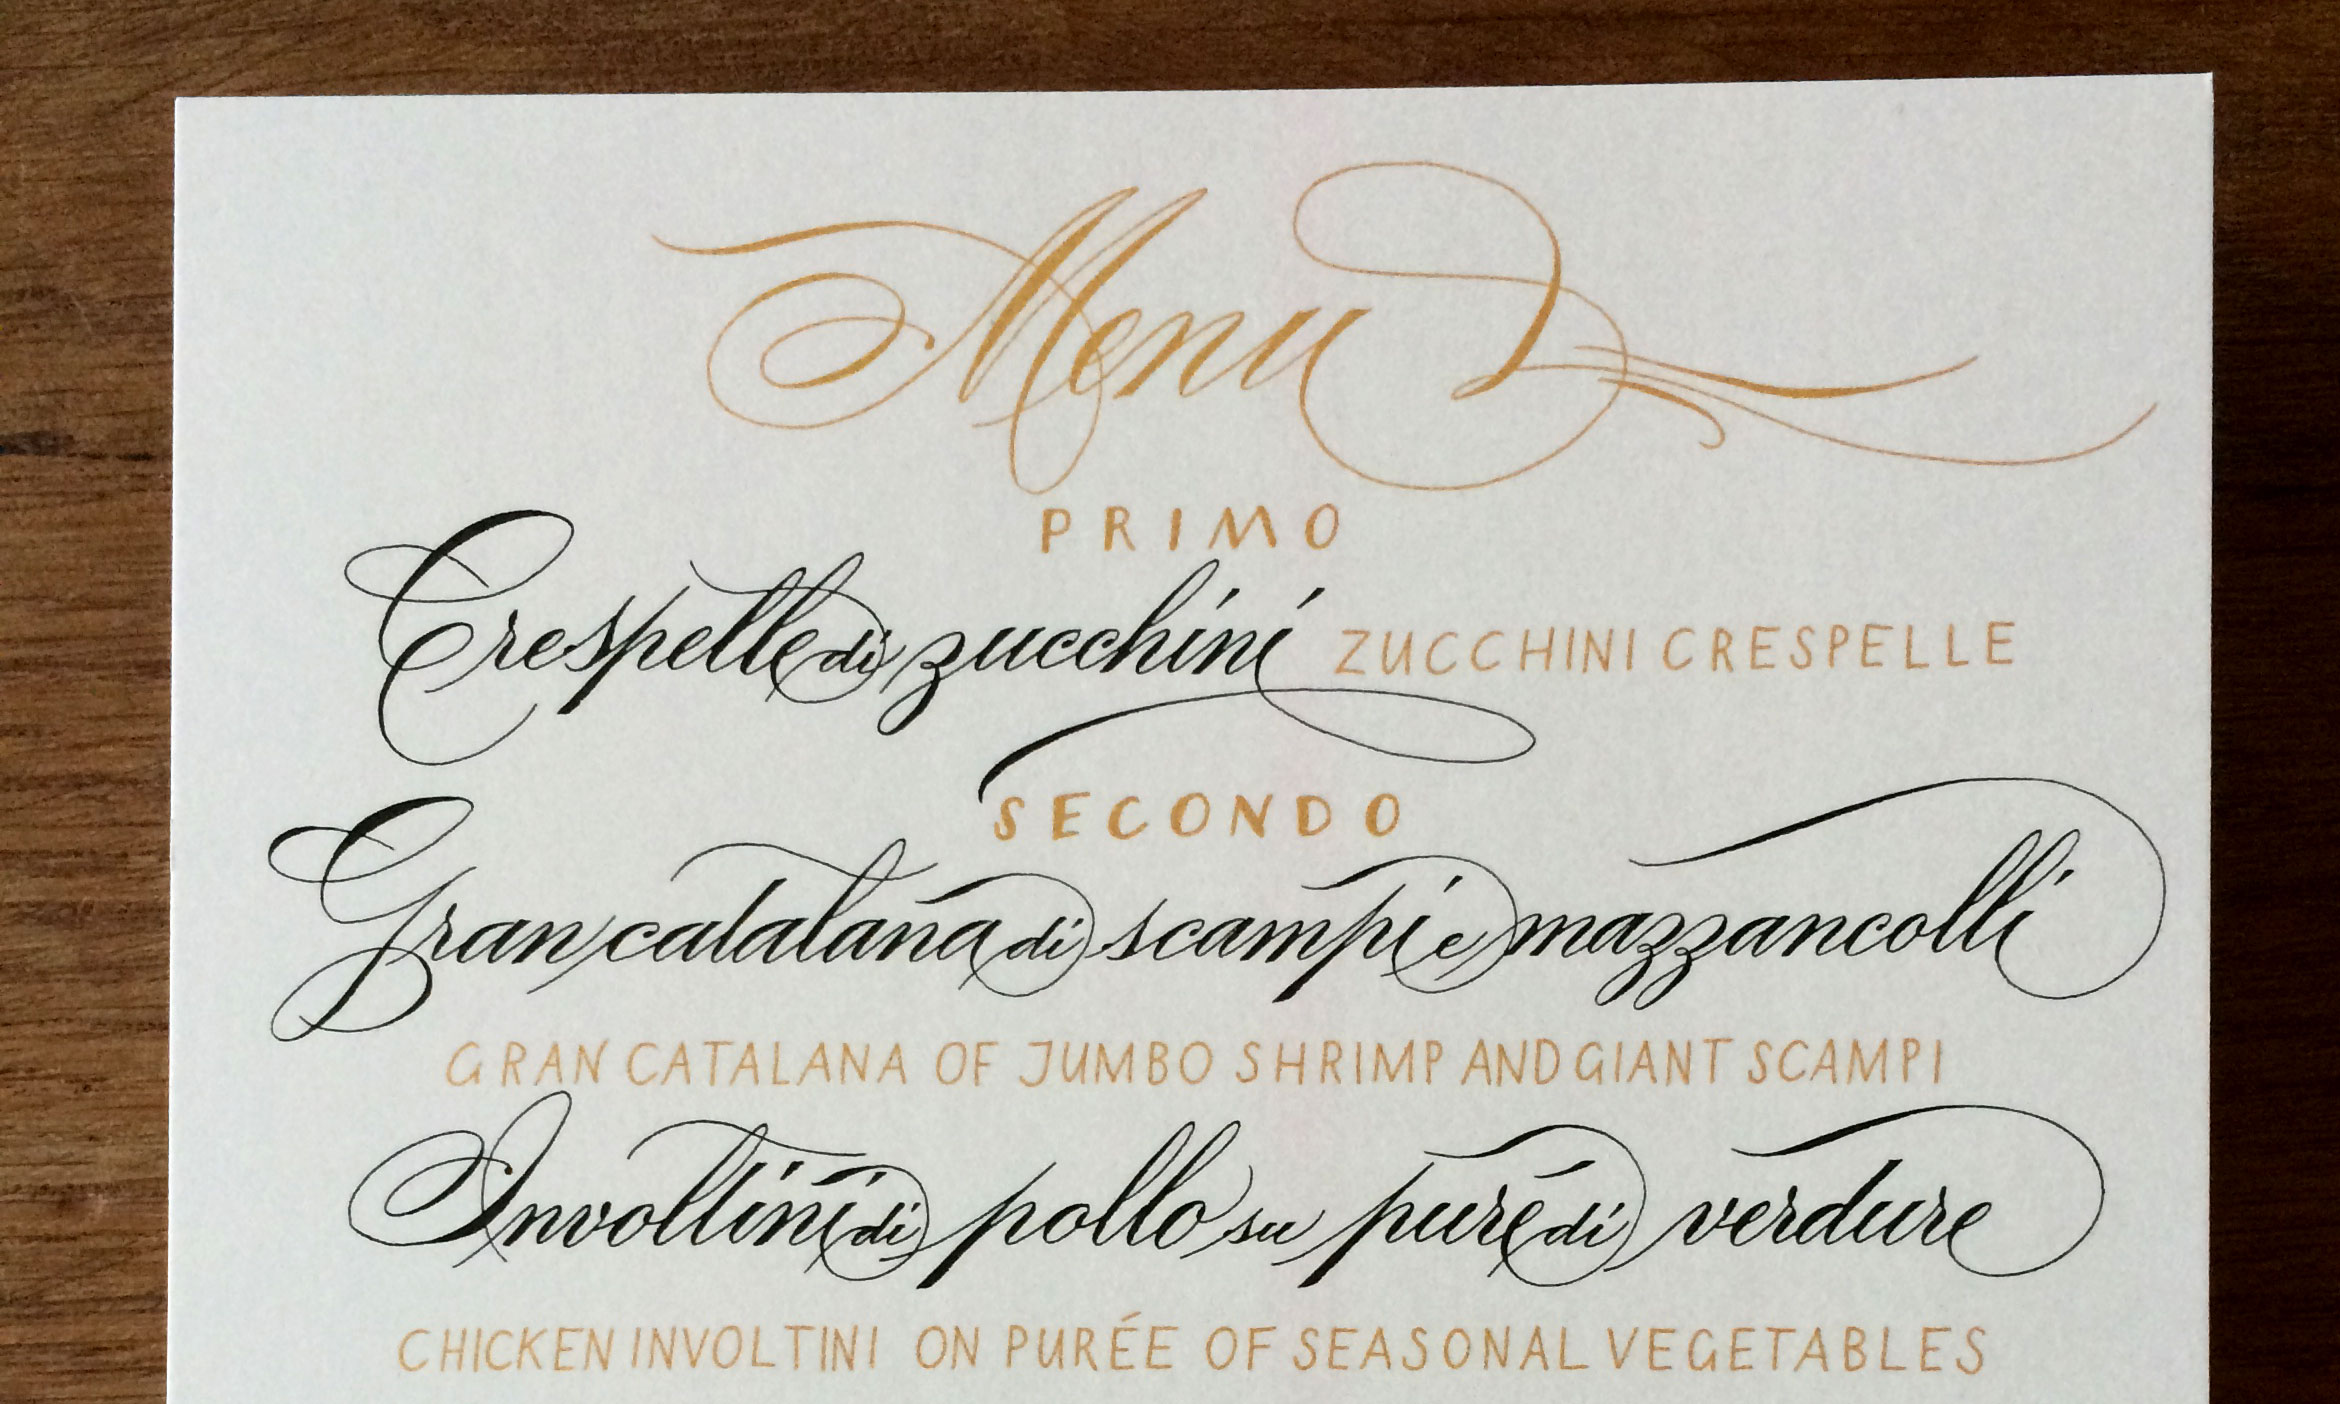 Menu
PRIMO
Crespelle di zucchini ZUCCHINI CRESPELLE
SECONDO
Gran catalana di scampi e mazzancolli
GRAN CATALANA OF JUMBO SHRIMP AND GIANT SCAMPI
Involtini di pollo su puré di verdure
CHICKEN INVOLTINI ON PURÉE OF SEASONAL VEGETABLES